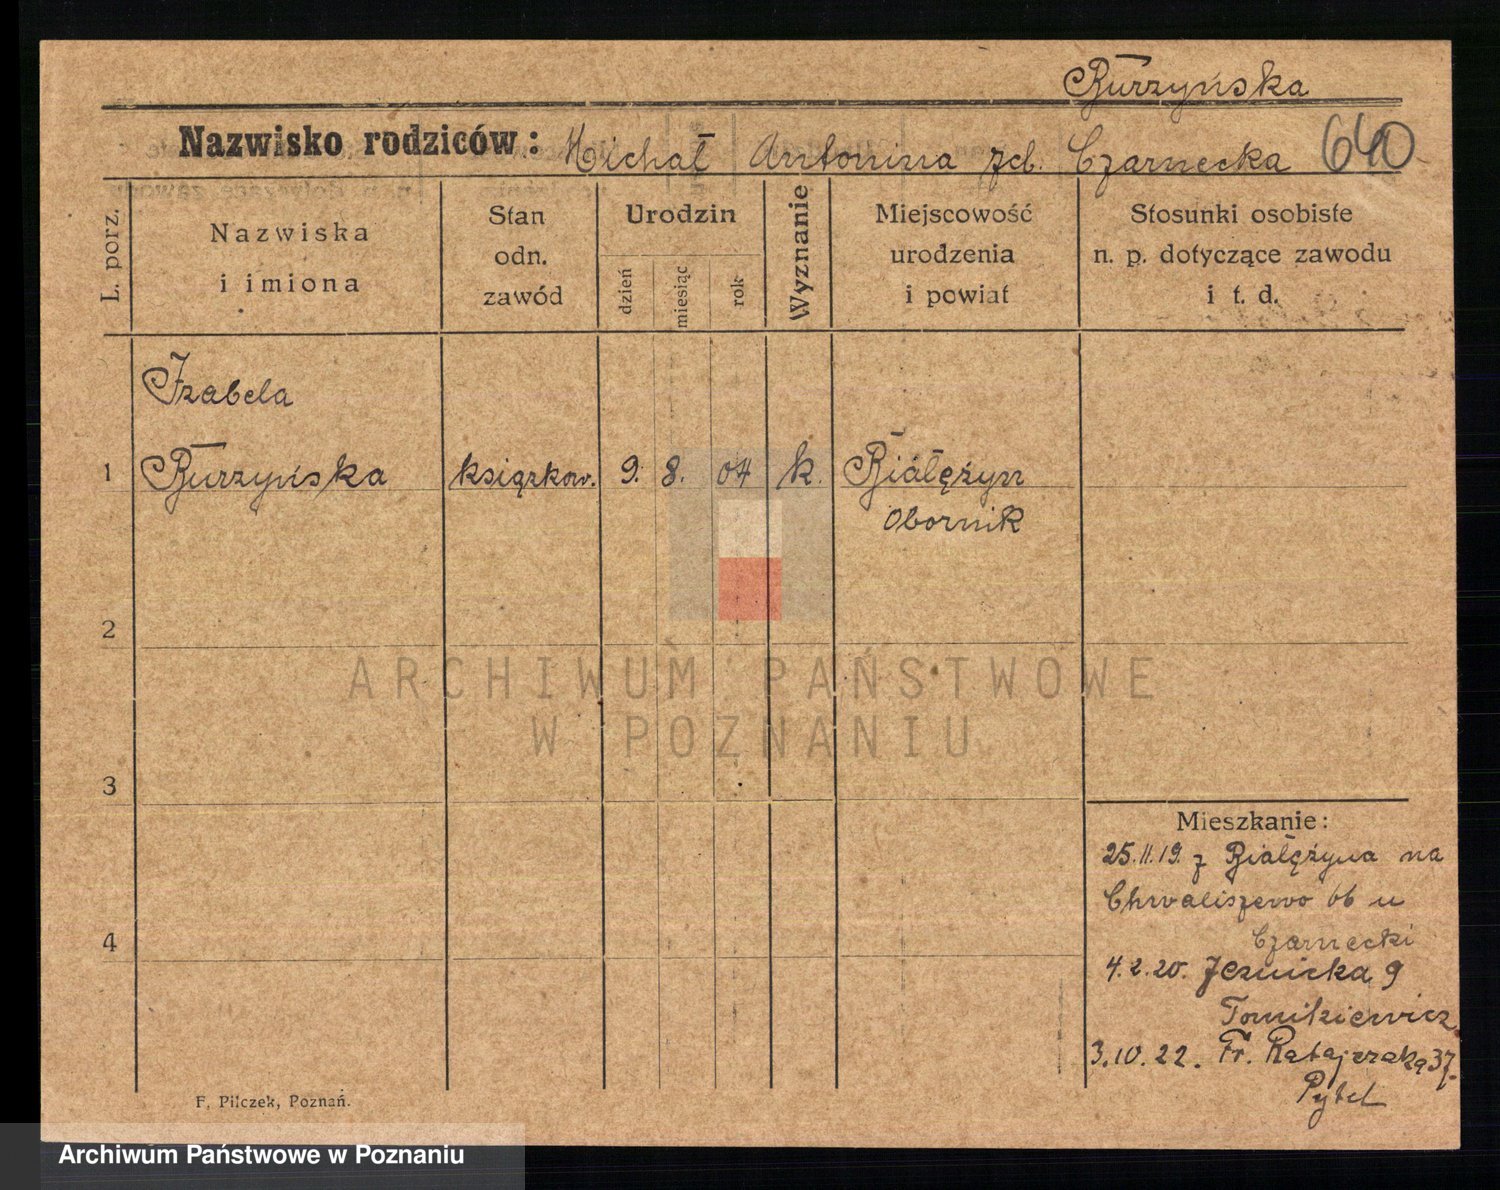 Burzyńska
Nazwisko rodziców: Michał Antonina zd. Czarnecka 640
L. porz.
Nazwiska
i imiona
Stan
odn.
zawód
Urodzin
dzień
miesiąc
rok
Wyznanie
Miejscowość
urodzenia
i powiat
Stosunki osobiste
n. p. dotyczące zawodu
i t. d.
Izabela
1 Burzyńska książkow. 9. 8. 04 k. Białężyn
Obornik
2
3
4
Mieszkanie:
25.11.19. z Białężyna na
Chwaliszewo 66 u
Czarnecki
4.2.20. Jezuicka 9
Tomikiewicz
3.10.22. Fr. Ratajczaka 37.
Pytel
F. Pilczek, Poznań.
ARCHIWUM PAŃSTWOWE
W POZNANIU
Archiwum Państwowe w Poznaniu